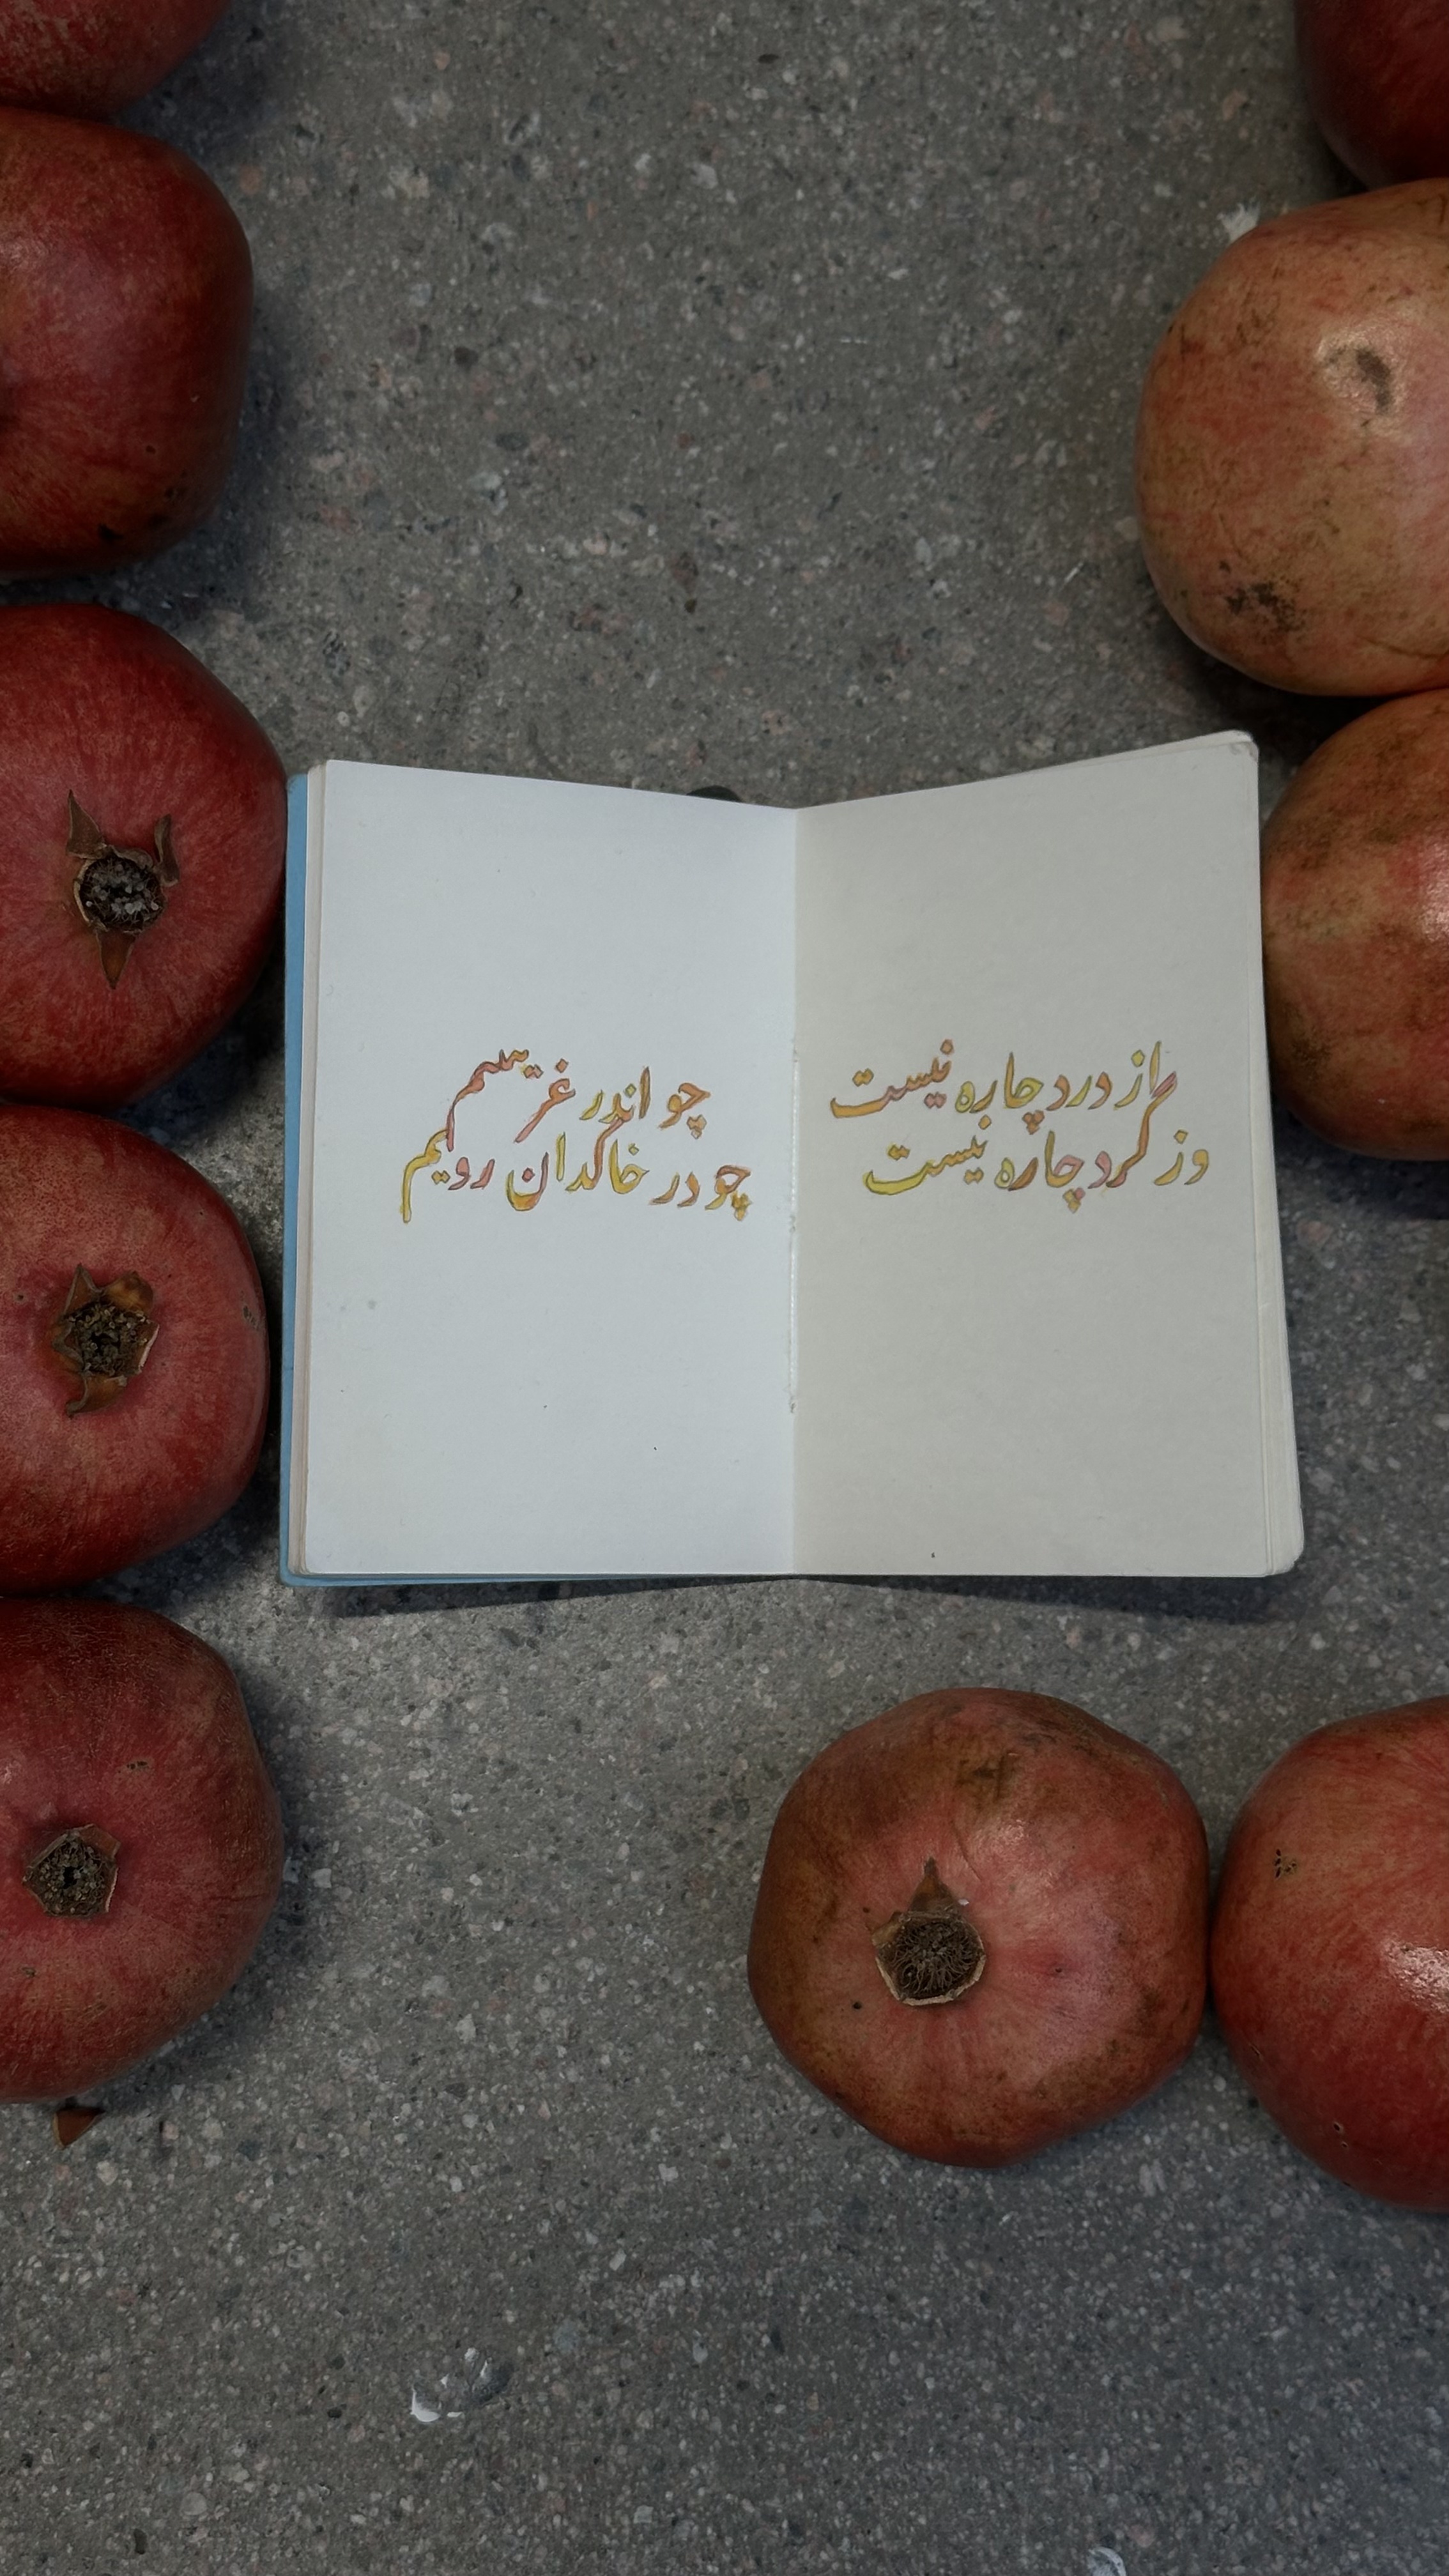 از درد چاره نیست
وز گرد چاره نیست
چو اندر غریبیم
چو در خاکدان رویم